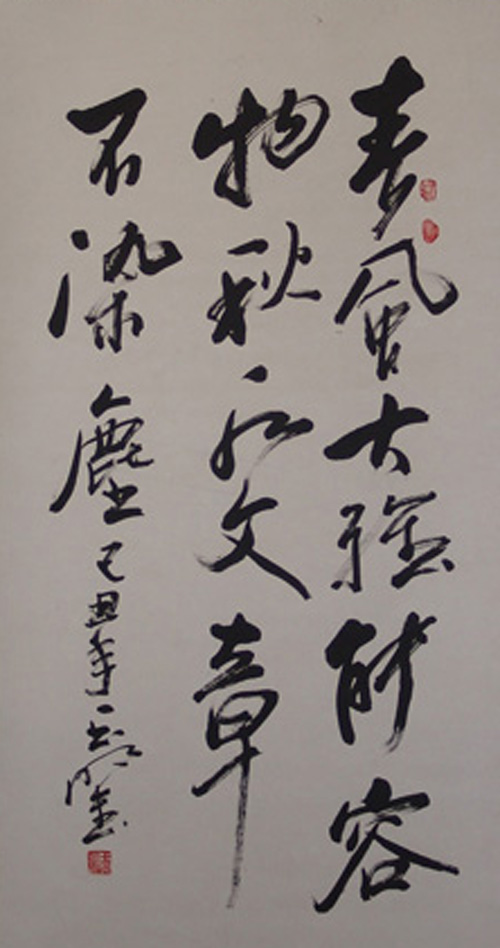 春風大雅能容
物秋水文章
不染塵己丑年